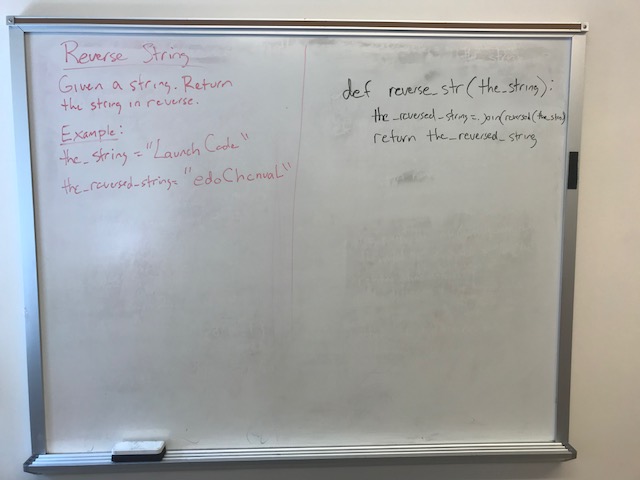 Reverse String
Given a string. Return
the string in reverse.
Example:
the_string = "Launch Code"
the_reversed_string= "edoChcnuaL"
def reverse_str(the_string):
the_reversed_string=.join(reversed(the_str)
return the_reversed_string